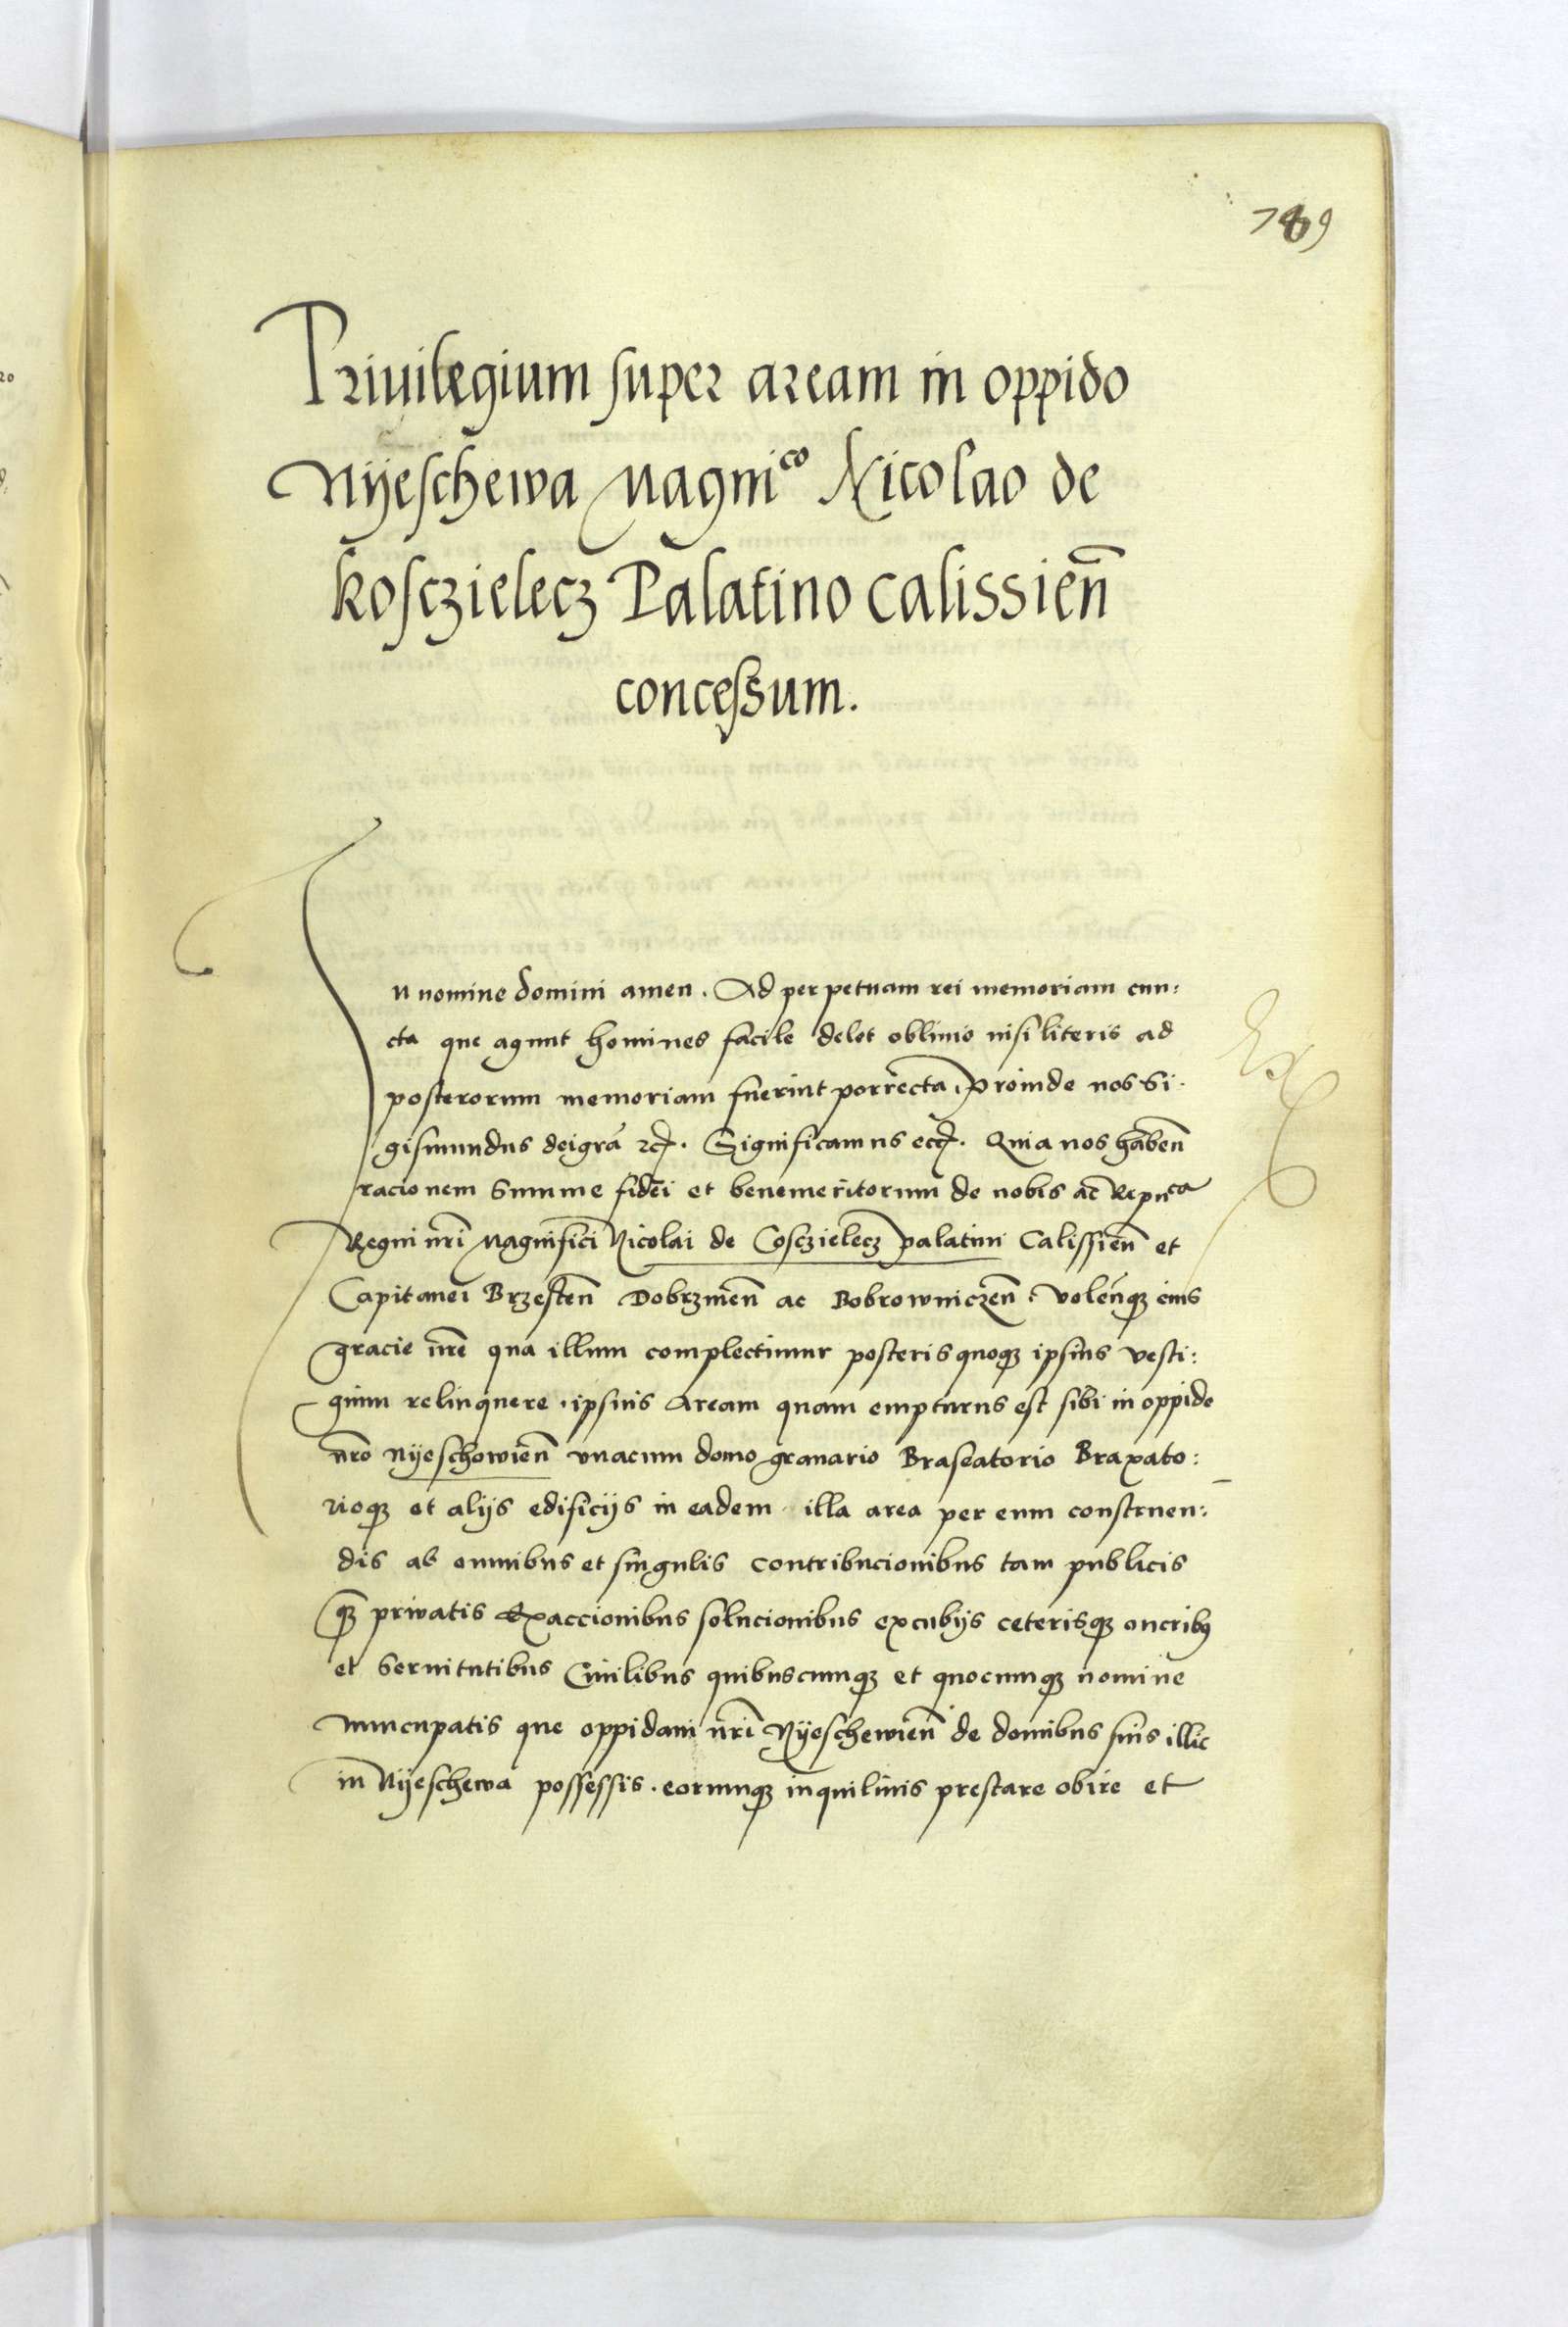 789
Priuilegium super aream in oppido
Nÿeschewa Magnico Nicolao de
kosczielecz Palatino calissien̄
concessum.
In nomine domini amen. Ad perpetuam rei memoriam cun:
cta que agunt homines facile delet obliuio nisi literis ad
posterorum memoriam fuerint porrecta, Proinde nos Si.
gismundus dei gra̅ etc. Significamus etc. Quia nos haben̄
racionem Summe fidei et benemeritorum de nobis ac̄ Repuca
Regni nr̄i Magnifici Nicolai de Cosczielecz palatini Calissien̄ et
Capitanei Brzesten̄ Dobrzinen̄ ac Bobrowniczen̄: Volen̄qз eius
gracie nr̄e qua illum complectimur posteris quoqз ipsius vesti:
gium relinquere. ipsius Aream quam empturus est sibi in oppido
nr̄o Nÿeschowien̄ vnacum domo granario Braseatorio Braxato:
rioqз et alijs edificijs in eadem illa area per eum construen:
dis ab omnibus et singulis contribucionibus tam publicis
qз privatis Exaccionibus solucionibus excubijs ceterisqз oneribꝯ
et Seruitutibus Ciuilibus quibuscumqз et quocumqз nomine
nuncupatis que oppidani nr̄i Nÿeschewien̄ de domibus suis illic
in Nÿeschewa possessis. eorumqз inquilinis prestare obire et